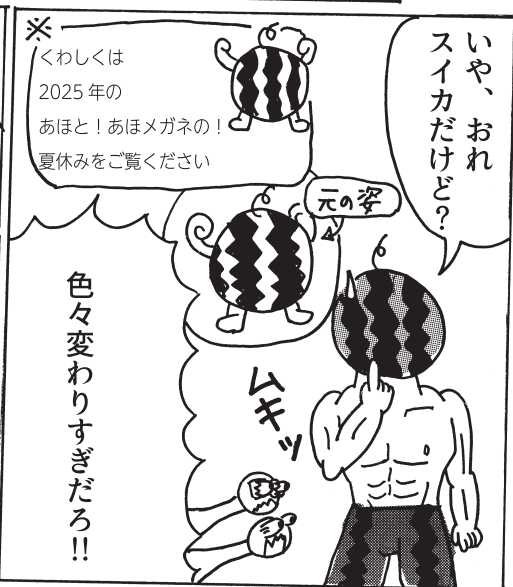 いや、おれ
スイカだけど？
※
くわしくは
2025年の
あほと！あほメガネの！
夏休みをご覧ください
元の姿
ムキッ
色々変わりすぎだろ!!